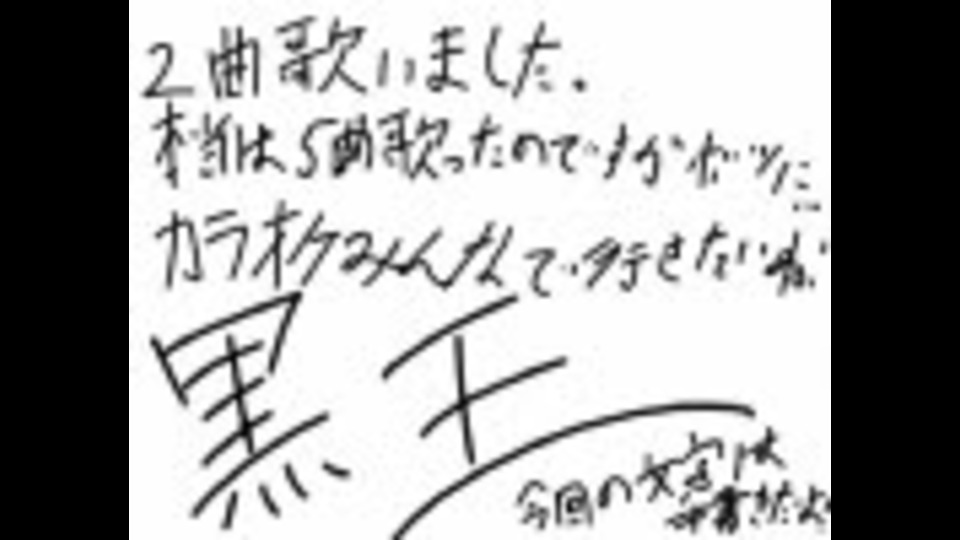 2曲歌いました。
本当は5曲歌ったのですがボツに…
カラオケみんなで行きたいね
黒王
今回の文字は
書きだよ